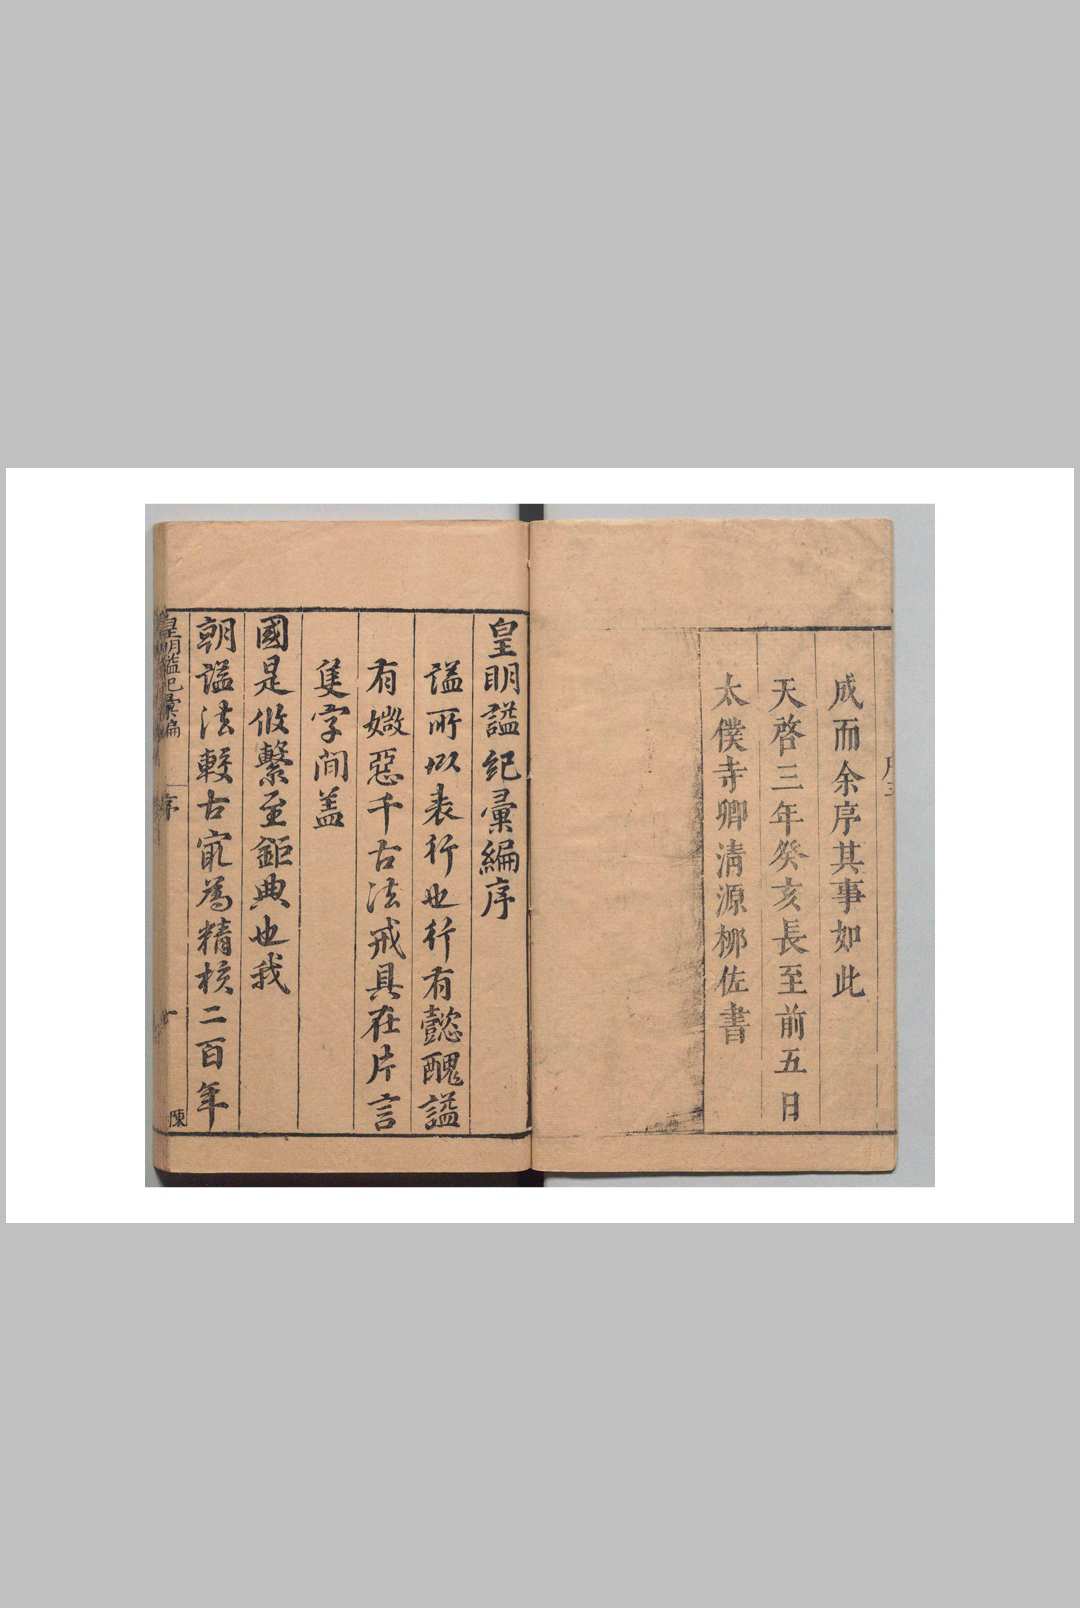 成而余序其事如此
天啓三年癸亥長至前五日
太僕寺卿清源栁佐書
皇明諡紀彙編序
諡所以表行也行有懿醜諡
有媺惡千古法戒具在片言
隻字間葢
國是攸繫至鉅典也我
朝諡法較古㝡為精核二百年
皇明諡紀彙編
序
一
陳